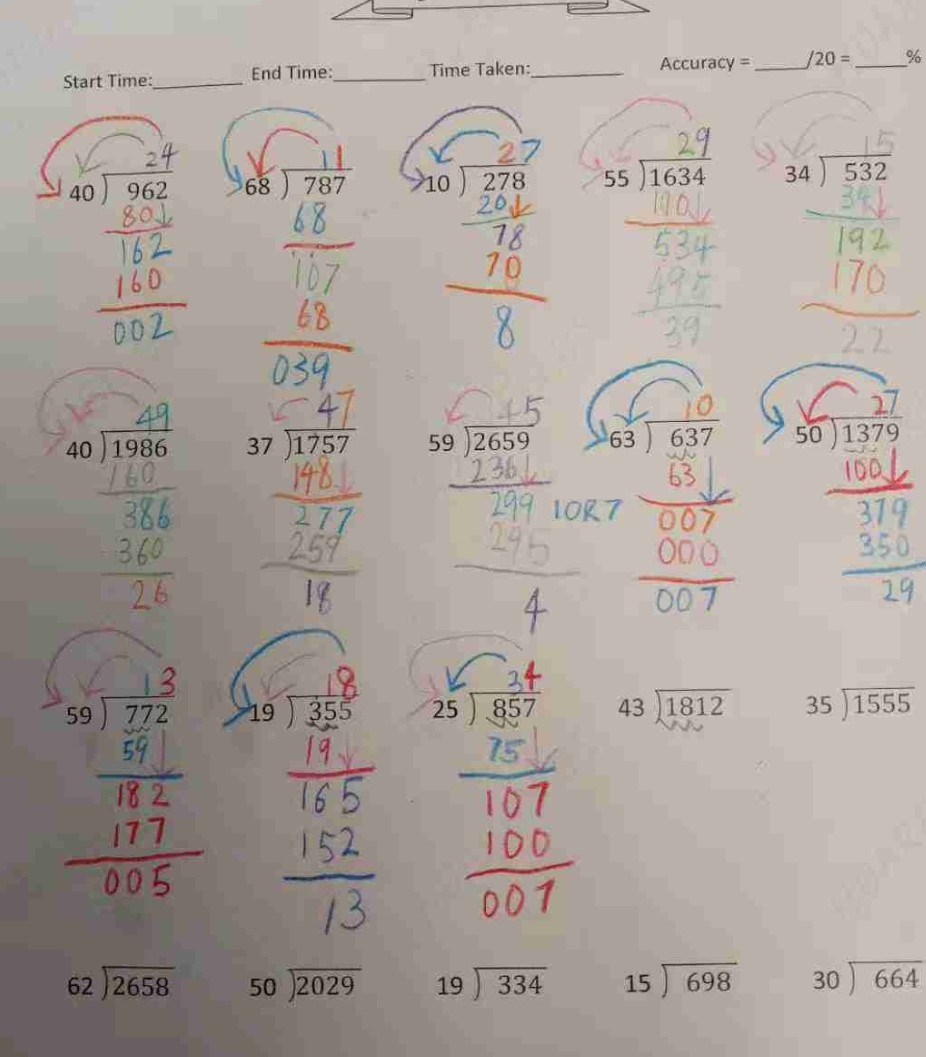 Start Time:________ End Time:________ Time Taken:________ Accuracy = _____/20 = _____%
24 11 27 29 15
40 ) 962 68 ) 787 10 ) 278 55 ) 1634 34 ) 532
80 68 20 110 34
162 107 78 534 192
160 68 70 495 170
002 039 8 39 22
49 47 45 10 27
40 ) 1986 37 ) 1757 59 ) 2659 63 ) 637 50 ) 1379
160 148 236 63 100
386 277 299 10R7 007 379
360 259 295 000 350
26 18 4 007 29
13 18 34
59 ) 772 19 ) 355 25 ) 857 43 ) 1812 35 ) 1555
59 19 75
182 165 107
177 152 100
005 13 007
62 ) 2658 50 ) 2029 19 ) 334 15 ) 698 30 ) 664